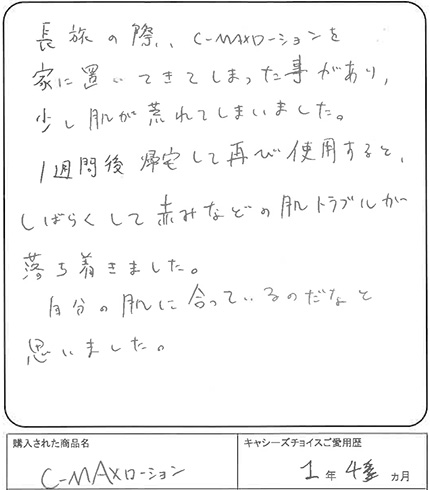 長旅の際、C-MAXローションを
家に置いてきてしまった事があり、
少し肌が荒れてしまいました。
1週間後帰宅して再び使用すると、
しばらくして赤みなどの肌トラブルが
落ち着きました。
自分の肌に合っているのだなと
思いました。
購入された商品名
C-MAXローション
キャシーズチョイスご愛用歴
1年4ヵ月